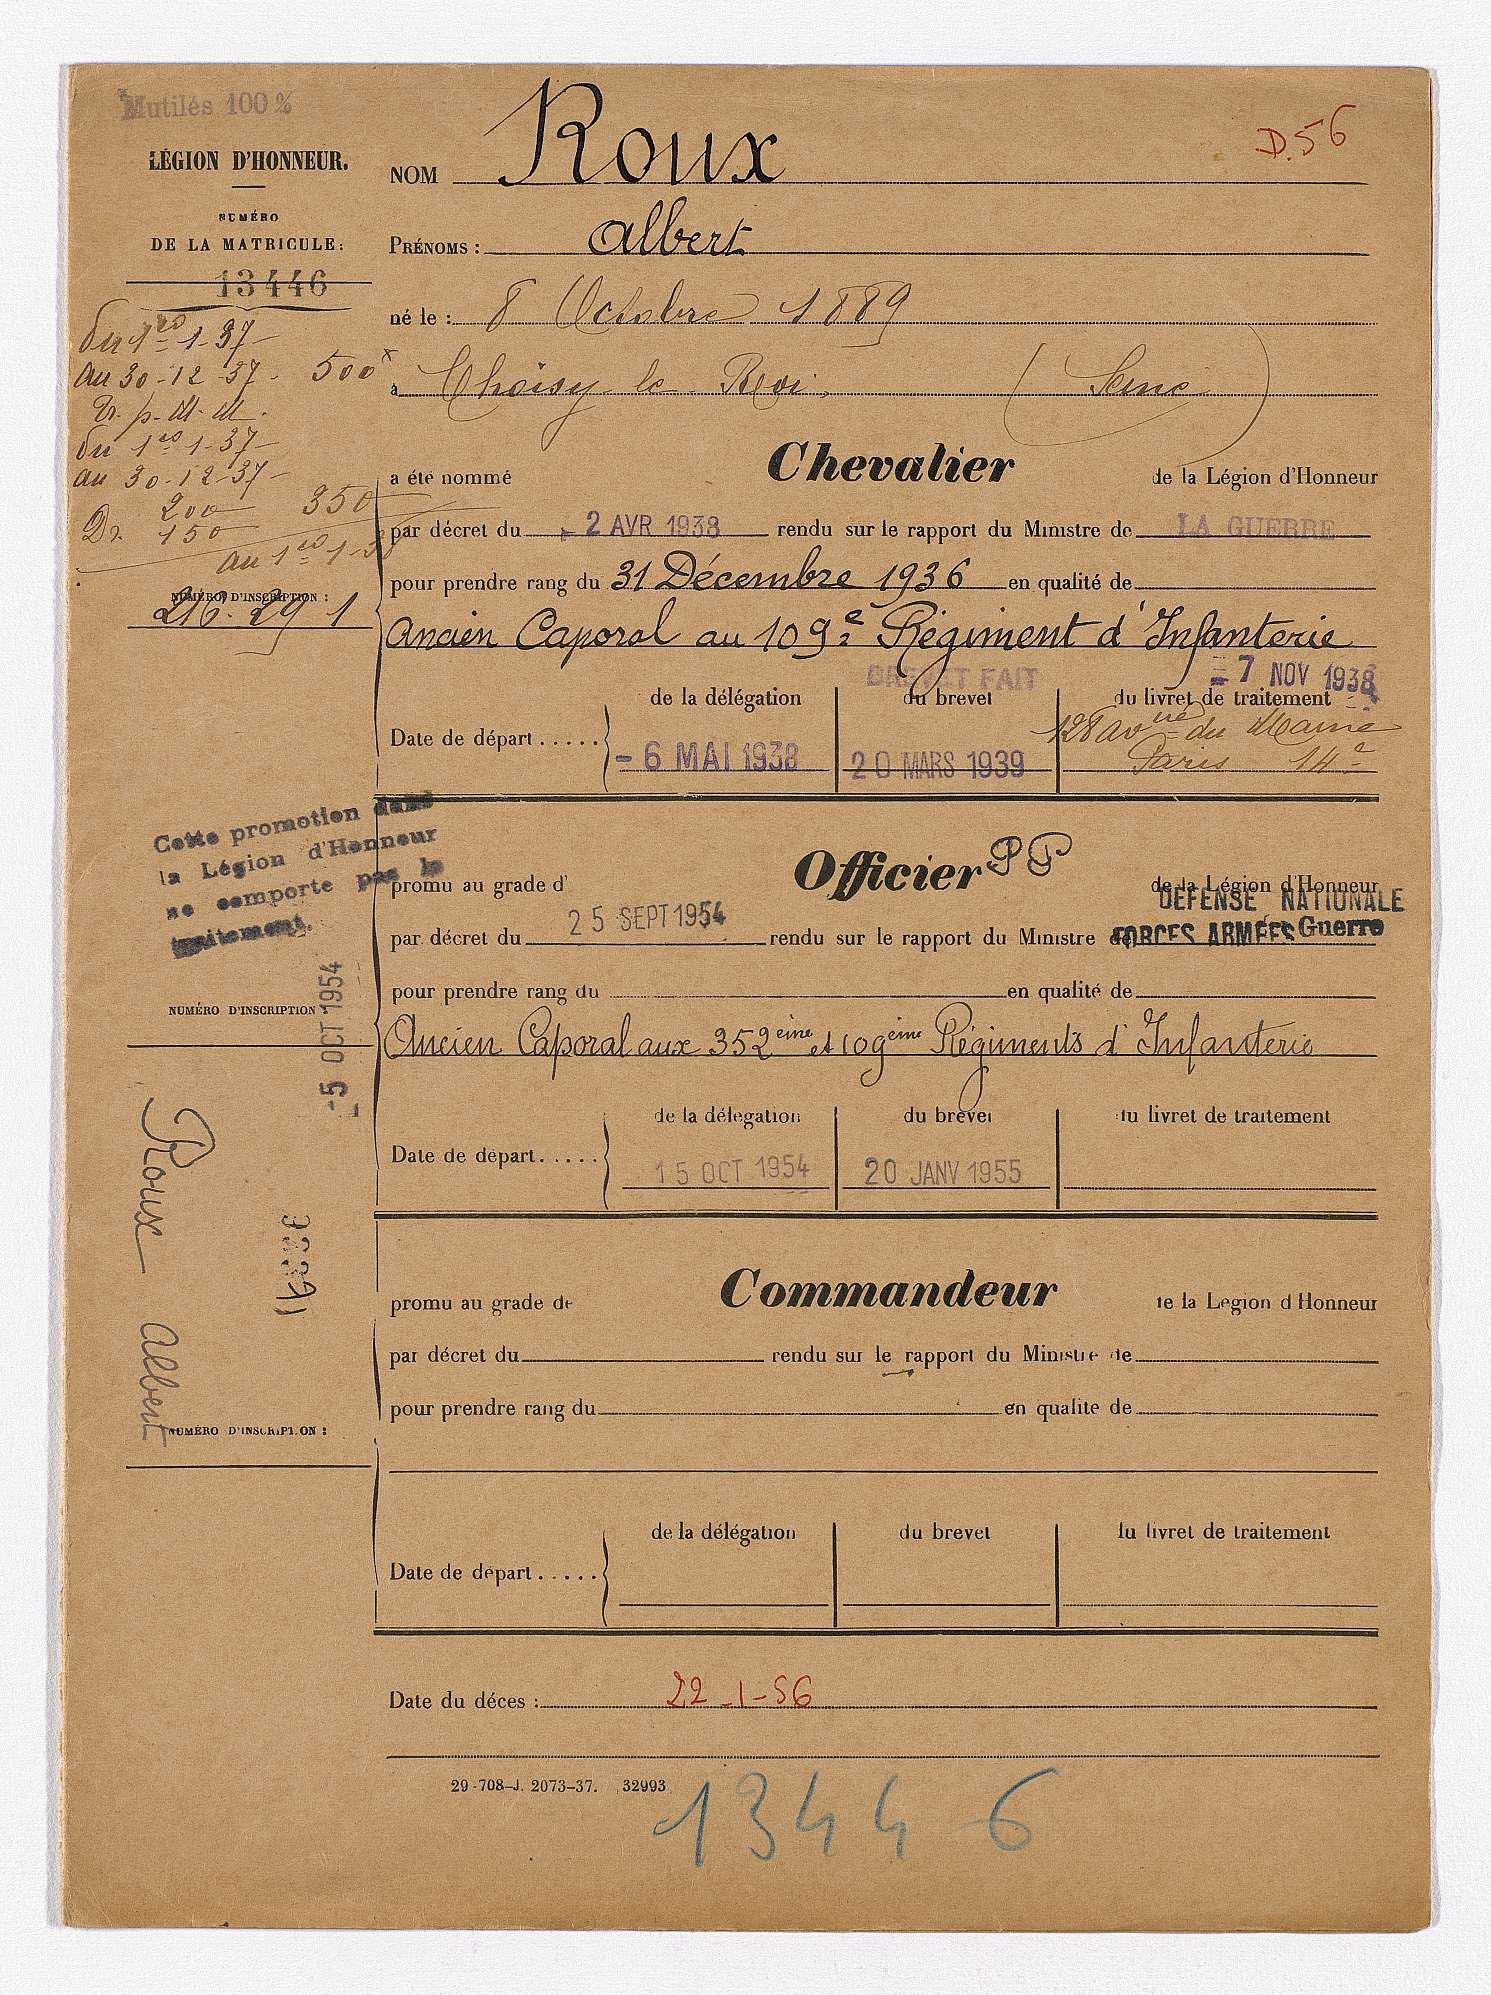 Mutilés 100 %
LÉGION D'HONNEUR.
NUMÉRO
DE LA MATRICULE:
13446
Du 1er 1-37
au 30-12-37. 500
Tr. p. M. M.
Du 1er 1-37
au 30-12-37
200 350
Dr. 150
au 1er 1-38
NUMÉRO D'INSCRIPTION :
216.291
NOM Roux
D.56
PRÉNOMS : Albert
né le : 8 Octobre 1889
à Choisy le Roi (Seine)
a été nommé Chevalier de la Légion d'Honneur
par décret du 2 AVR 1938 rendu sur le rapport du Ministre de LA GUERRE
pour prendre rang du 31 Décembre 1936 en qualité de
Ancien Caporal au 109e Régiment d'Infanterie
BREVET FAIT
- 7 NOV 1938
de la délégation du brevet du livret de traitement
128 avnue du Maine
Paris 14e
Date de départ ..... - 6 MAI 1938 20 MARS 1939
Cette promotion dans
la Légion d'Honneur
ne comporte pas le
traitement.
Officier P G
promu au grade d' de la Légion d'Honneur
DEFENSE NATIONALE
par décret du 25 SEPT 1954 rendu sur le rapport du Ministre de FORCES ARMÉES Guerre
pour prendre rang du en qualité de
NUMÉRO D'INSCRIPTION :
- 5 OCT 1954
Ancien Caporal aux 352eme et 109eme Régiments d'Infanterie
de la délégation du brevet du livret de traitement
Date de départ ..... 15 OCT 1954 20 JANV 1955
Roux Albert
promu au grade de Commandeur de la Légion d'Honneur
par décret du rendu sur le rapport du Ministre de
pour prendre rang du en qualité de
NUMÉRO D'INSCRIPTION :
de la délégation du brevet du livret de traitement
Date de départ .....
Date du déces : 22-1-56
29-708-J. 2073-37. 32993
13446